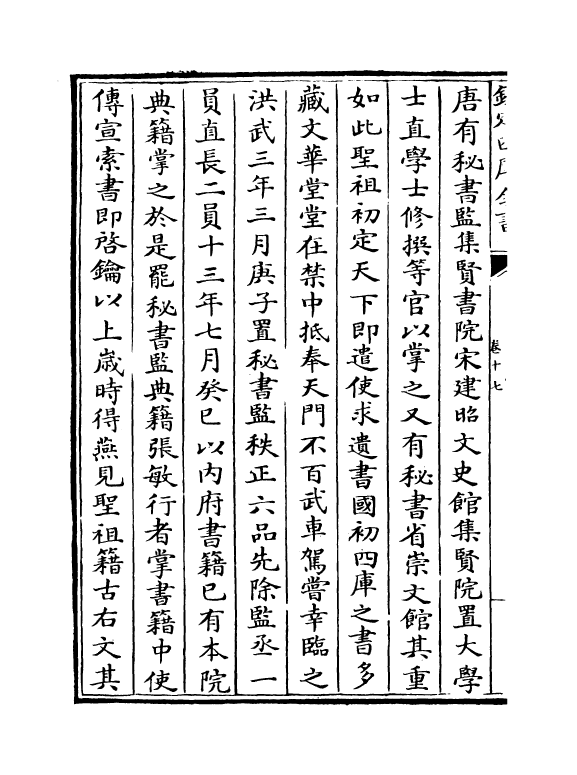 唐有秘書監集賢書院宋建昭文史館集賢院置大學
士直學士修撰等官以掌之又有秘書省崇文館其重
如此聖祖初定天下即遣使求遺書國初四庫之書多
藏文華堂堂在禁中抵奉天門不百武車駕嘗幸臨之
洪武三年三月庚子置秘書監秩正六品先除監丞一
員直長二員十三年七月癸巳以内府書籍已有本院
典籍掌之於是罷秘書監典籍張敏行者掌書籍中使
傳宣索書即啓鑰以上歲時得燕見聖祖籍古右文其
卷十七